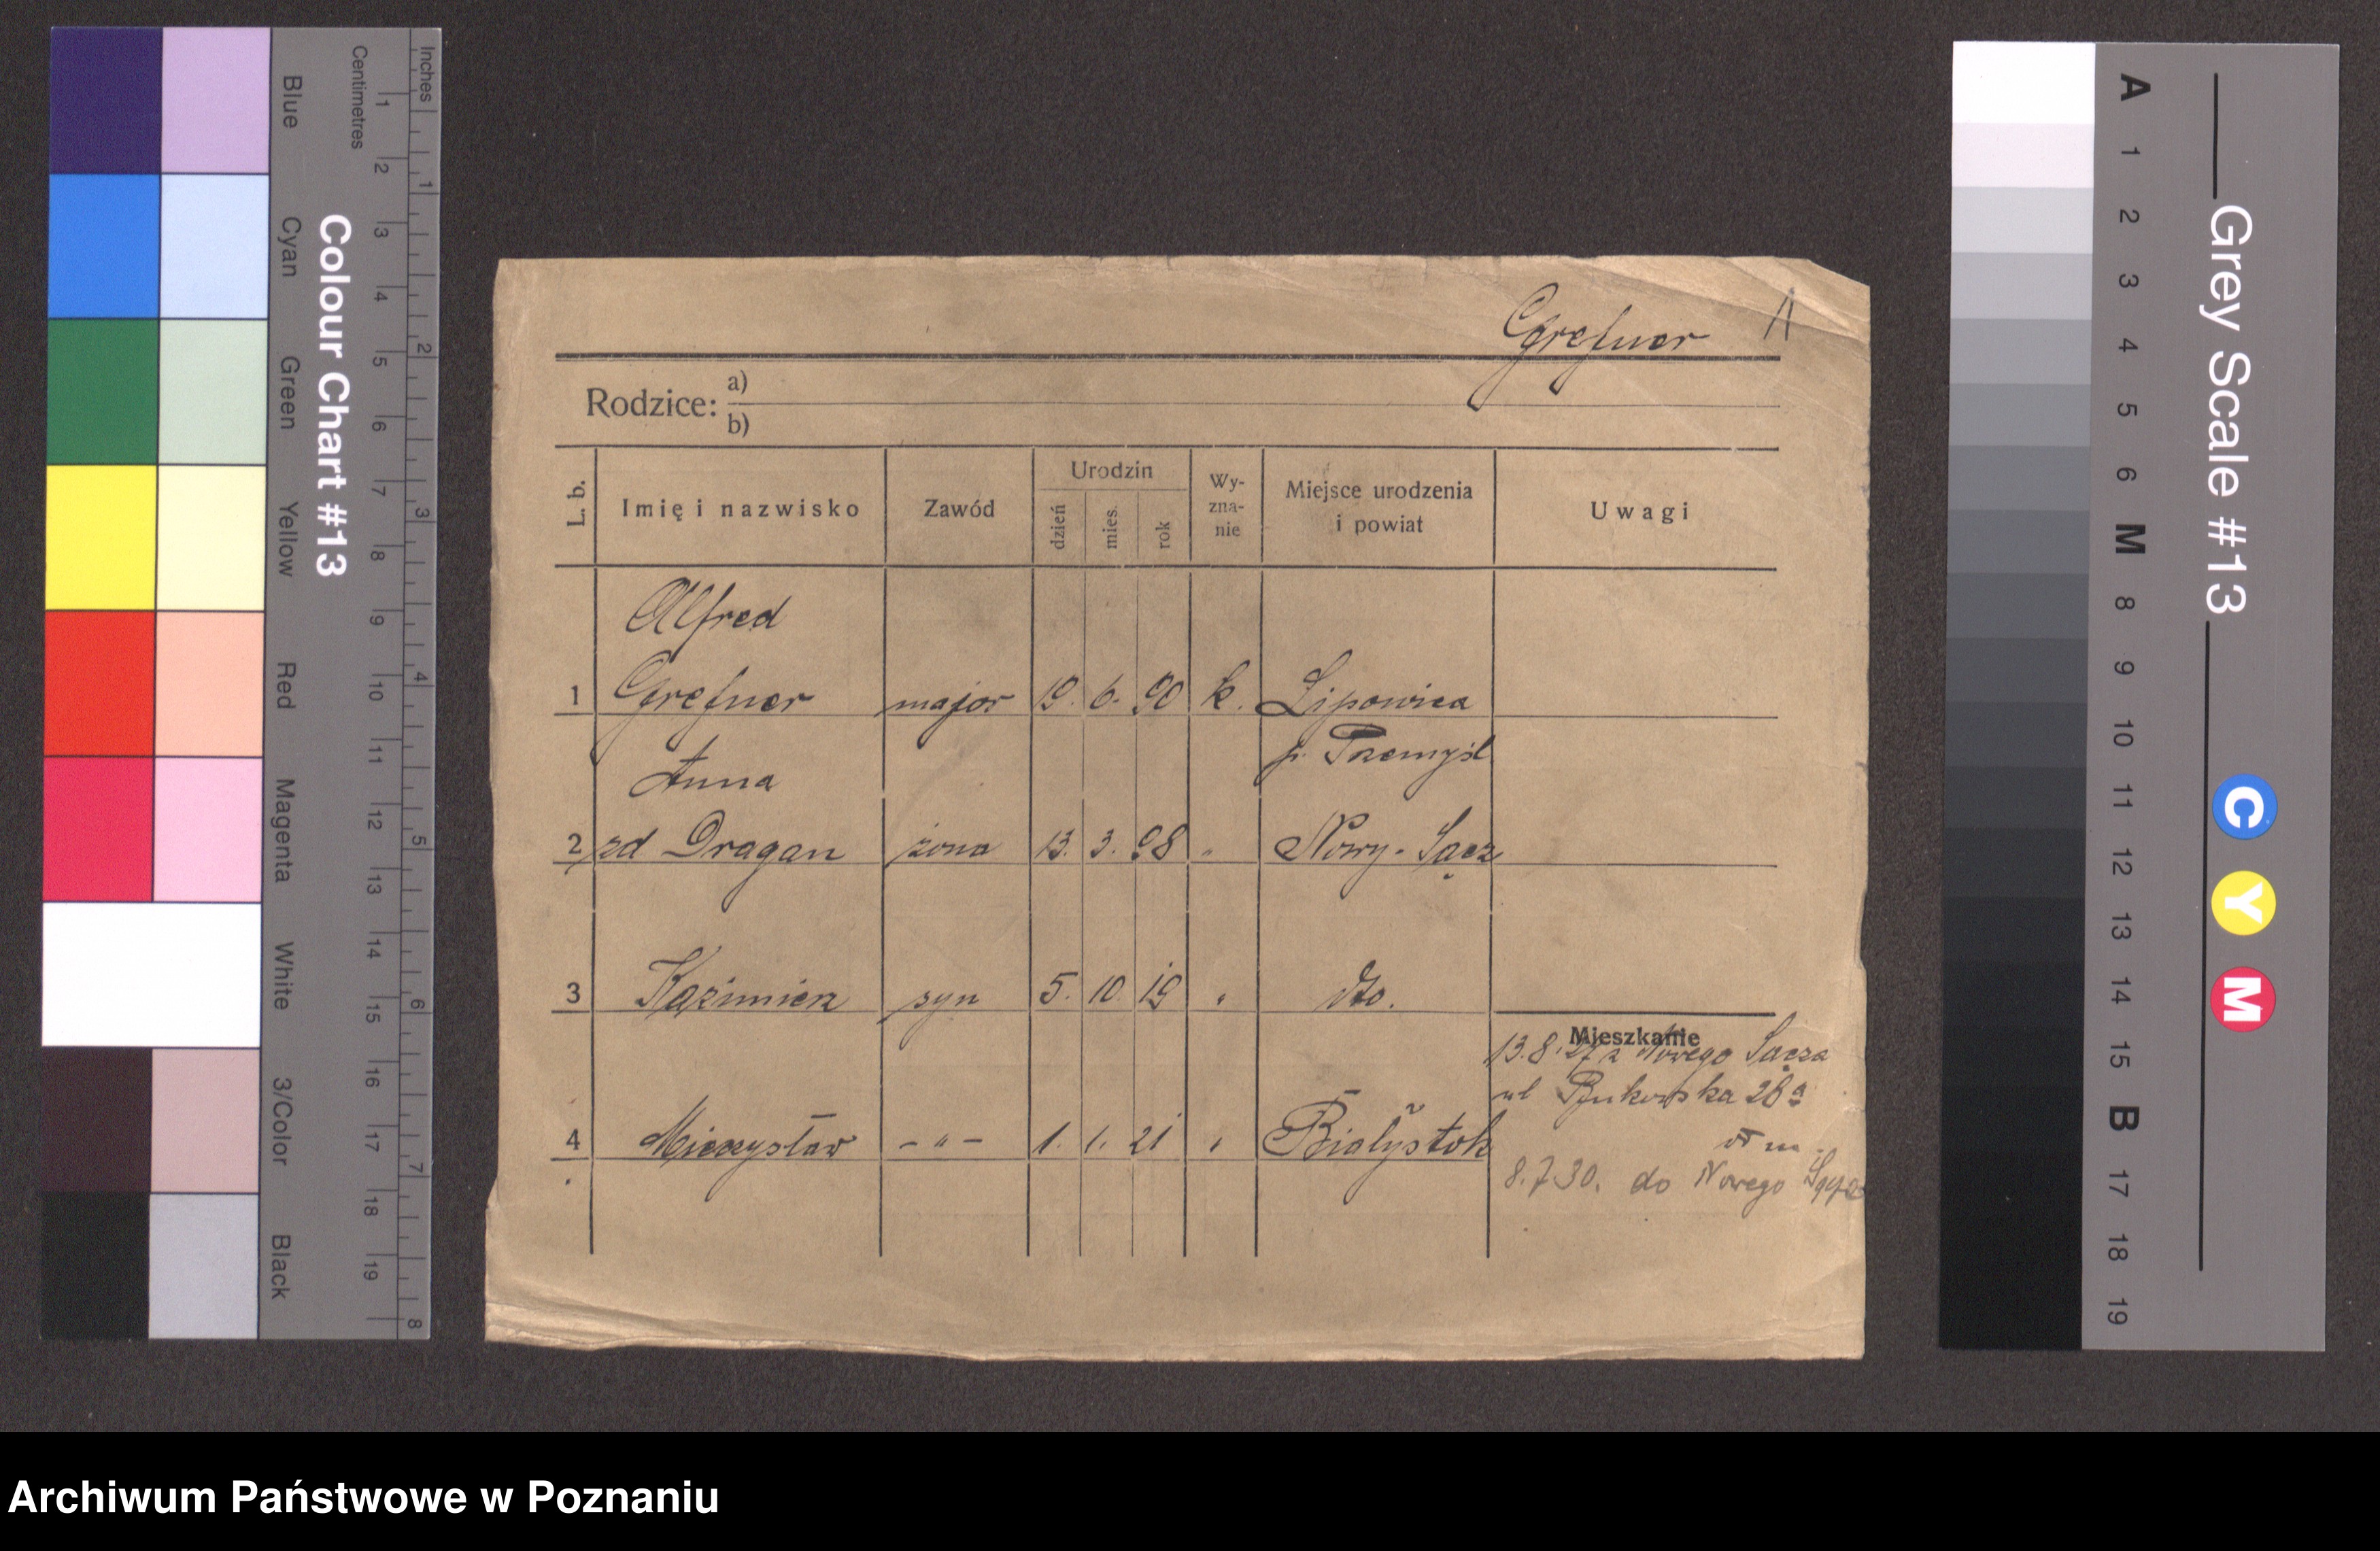 Inches
Centimetres
1 2 3 4 5 6 7 8
1 2 3 4 5 6 7 8 9 10 11 12 13 14 15 16 17 18 19
Blue Cyan Green Yellow Red Magenta White 3/Color Black
Colour Chart #13
Grefner
Rodzice: a)
b)
L. b. Imię i nazwisko Zawód Urodzin dzień mies. rok Wy-zna-nie Miejsce urodzenia i powiat Uwagi
Alfred
1 Grefner major 19. 6. 90 k. Lipowica
p. Przemyśl
Anna
2 zd Dragan żona 13. 3. 98 " Nowy-Sącz
3 Kazimierz syn 5. 10. 19 " dto.
Mieszkanie
13.8.27 z Nowego Sącza
ul Bukowska 26a
4 Mieczysław - " - 1. 1. 21 " Białystok
8.7.30. do Nowego Sącza
Grey Scale #13
A 1 2 3 4 5 6 M 8 9 10 11 12 13 14 15 B 17 18 19
C Y M
Archiwum Państwowe w Poznaniu